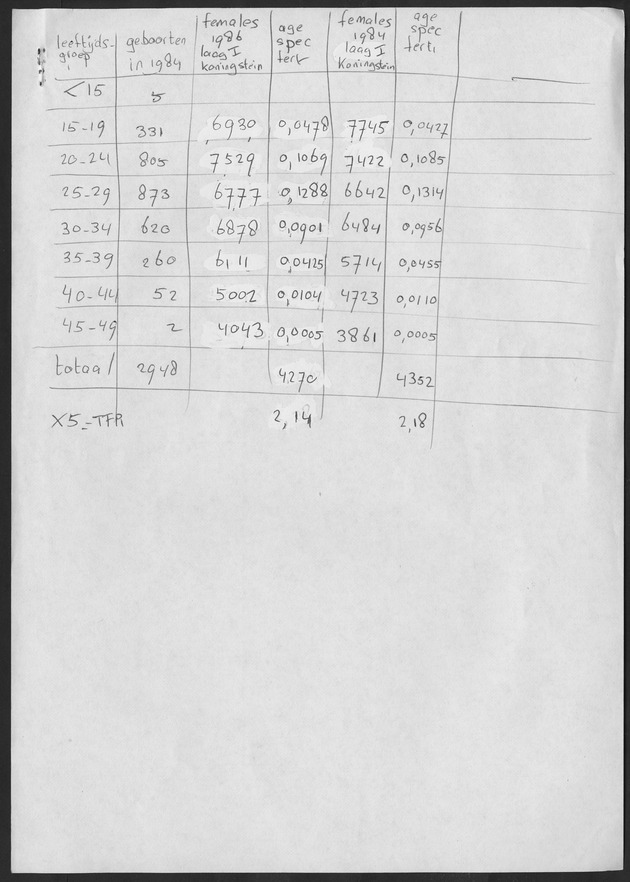 leeftijds- geboorten females age females age
groep in 1984 1986 spec 1984 spec
laag I fert laag I fert.
Koningstein Koningstein
<15 5
15-19 331 6930 0,0478 7745 0,0427
20-24 805 7529 0,1069 7422 0,1085
25-29 873 6777 0,1288 6642 0,1314
30-34 620 6878 0,0901 6484 0,0956
35-39 260 6111 0,0425 5714 0,0455
40-44 52 5002 0,0104 4723 0,0110
45-49 2 4043 0,0005 3861 0,0005
totaal 2948 4270 4352
X5-TFR 2,14 2,18